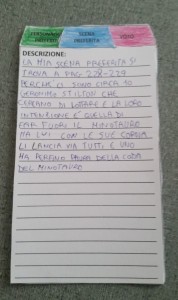 PERSONAGGIO PREFERITO
SCENA PREFERITA
DESCRIZIONE:
LA MIA SCENA PREFERITA SI
TROVA A PAG 228-229
PERCHÉ CI SONO CIRCA 10
GERONIMO STILTON CHE
CERCANO DI LOTTARE E LA LORO
INTENZIONE È QUELLA DI
FAR FUORI IL MINOTAURO
MA LUI CON LE SUE CORNA
LI LANCIA VIA TUTTI E UNO
HA PERFINO PAURA DELLA CODA
DEL MINOTAURO